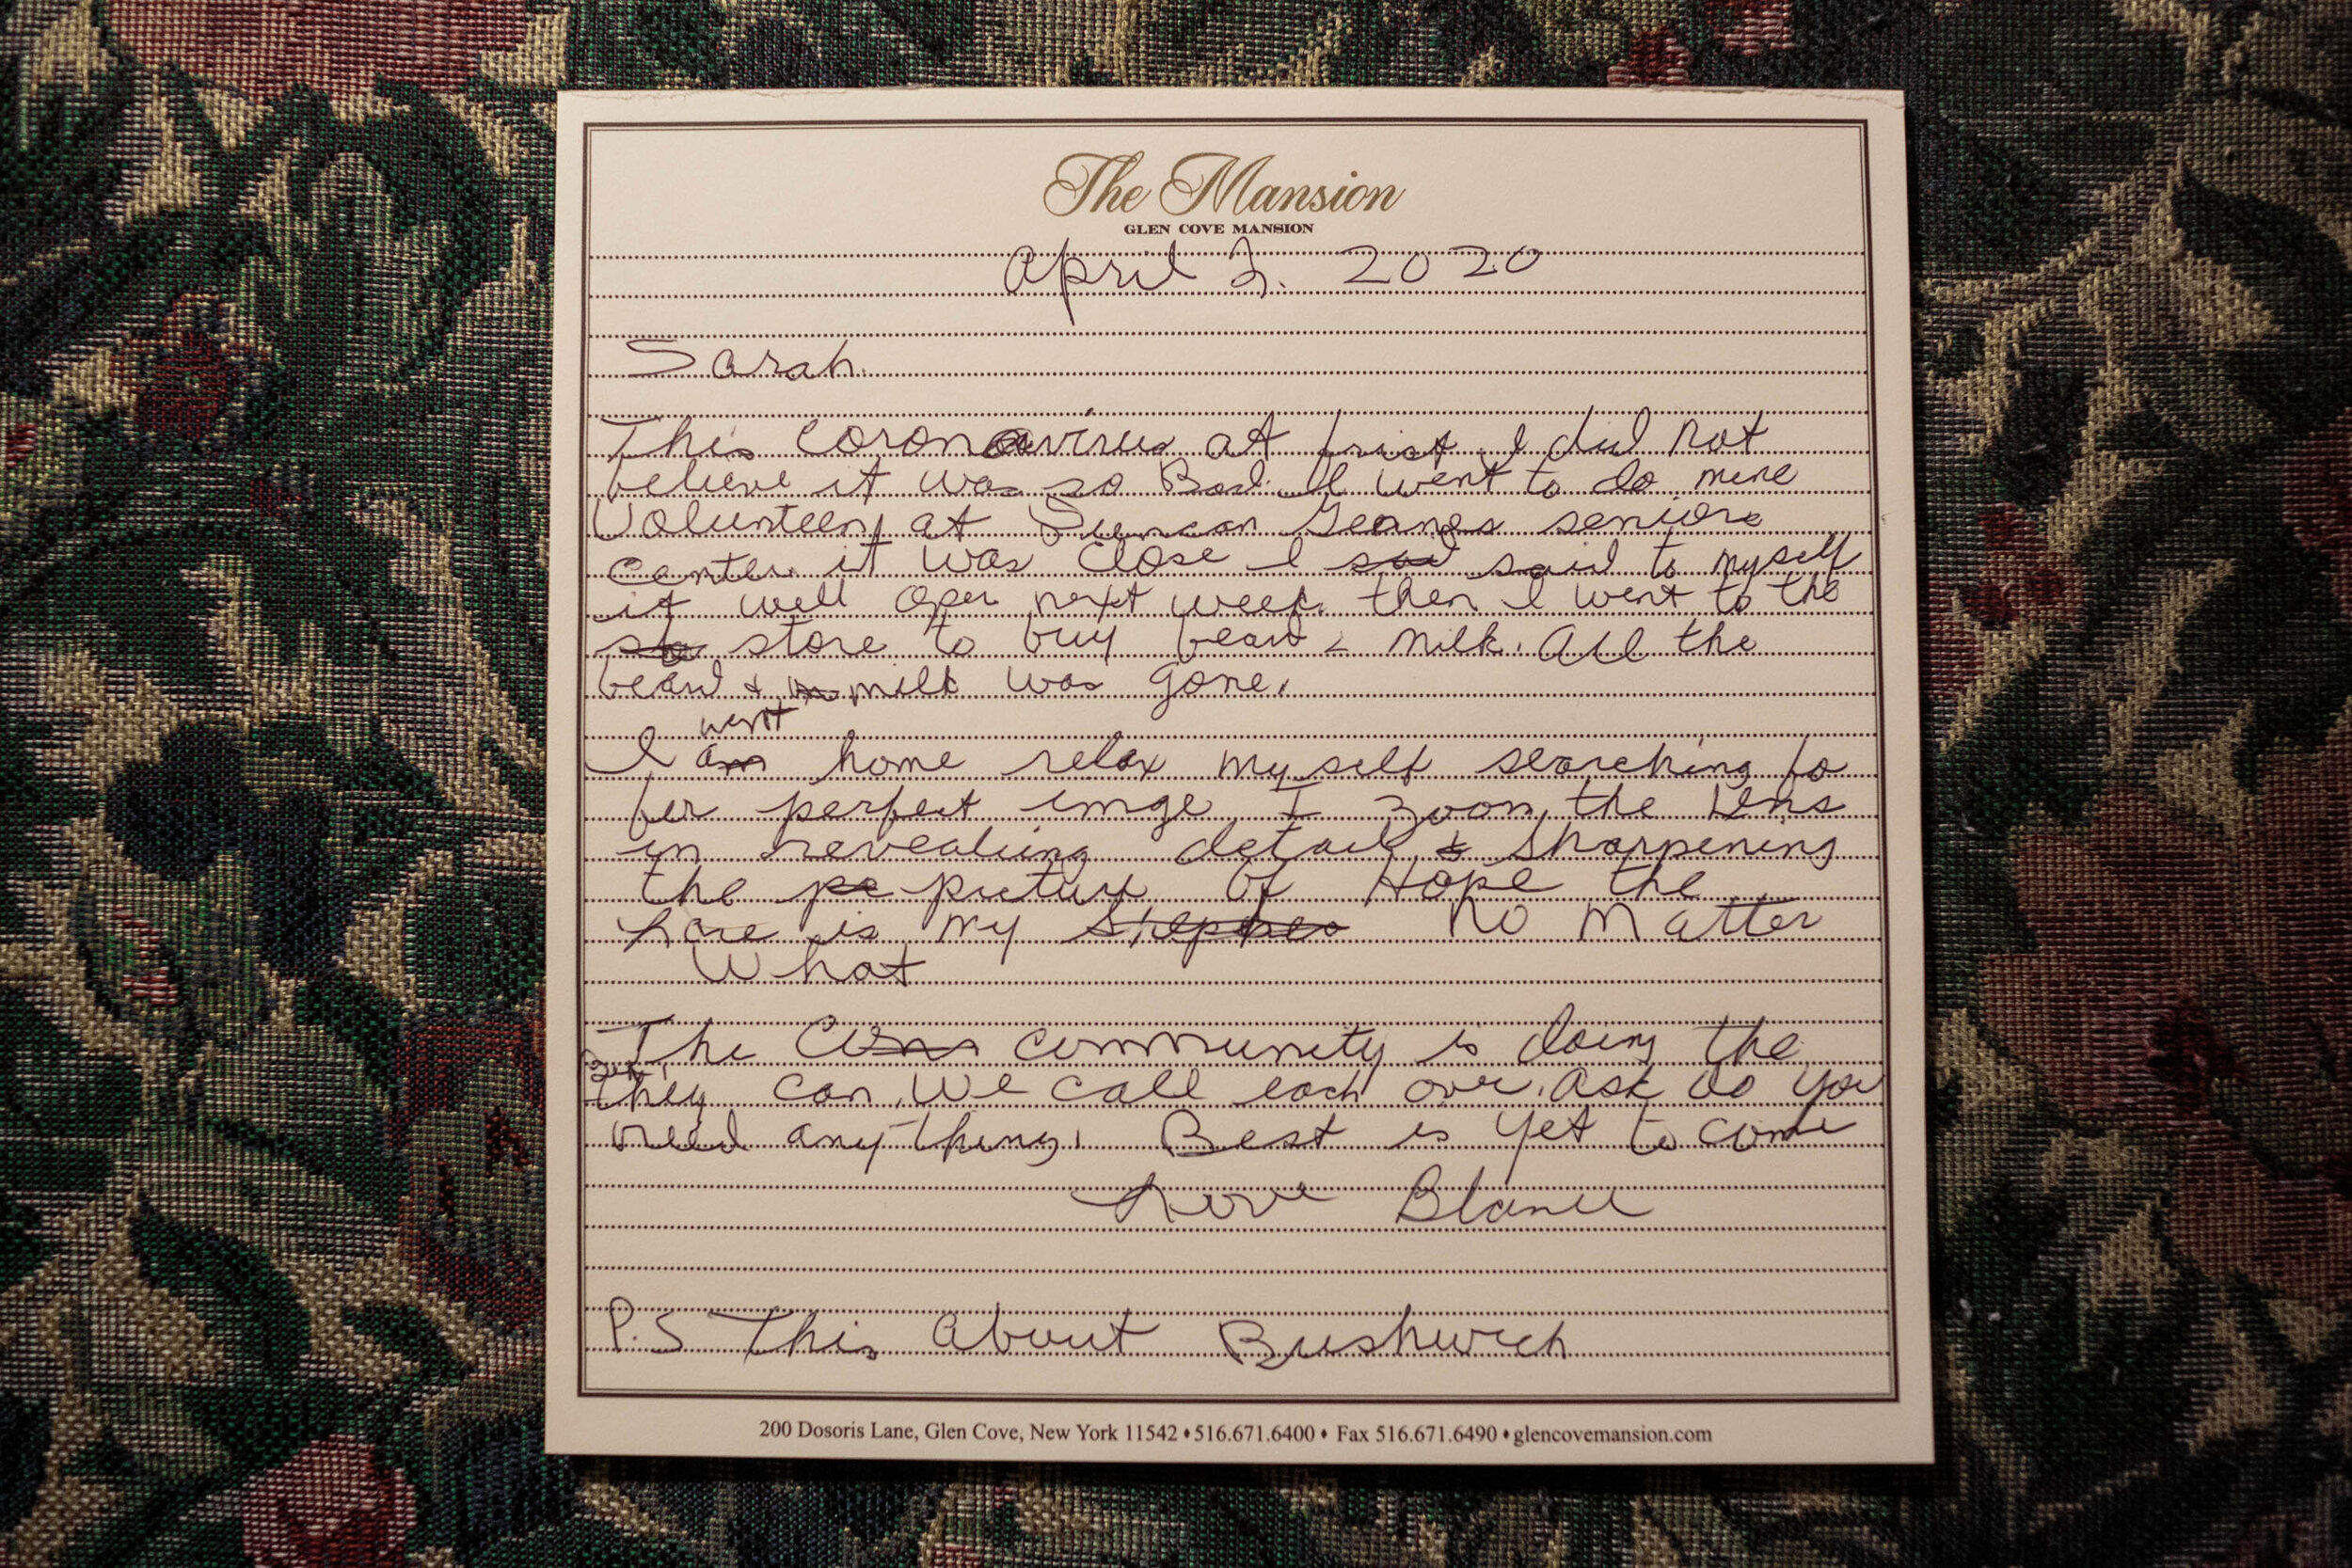 The Mansion
GLEN COVE MANSION
April 2. 2020
Sarah.
This coronavirus at frist I did not
believe it was so Bad. I went to do mine
Volunteery at Duncan seniors
center it was close I said to myself
it well open next week. then I went to the
store to buy beard & milk. All the
beard & milk was gone.
I went home relax myself searching fo
for perfect imge I zoom the lens
in revealing detail & sharpening
the picture of Hope the
is my No Matter
What
The community is doing the
they can. We call each over. Ask do you
need anything. Best is yet to come
Love
P.S This About Bushwich
200 Dosoris Lane, Glen Cove, New York 11542 • 516.671.6400 • Fax 516.671.6490 • glencovemansion.com